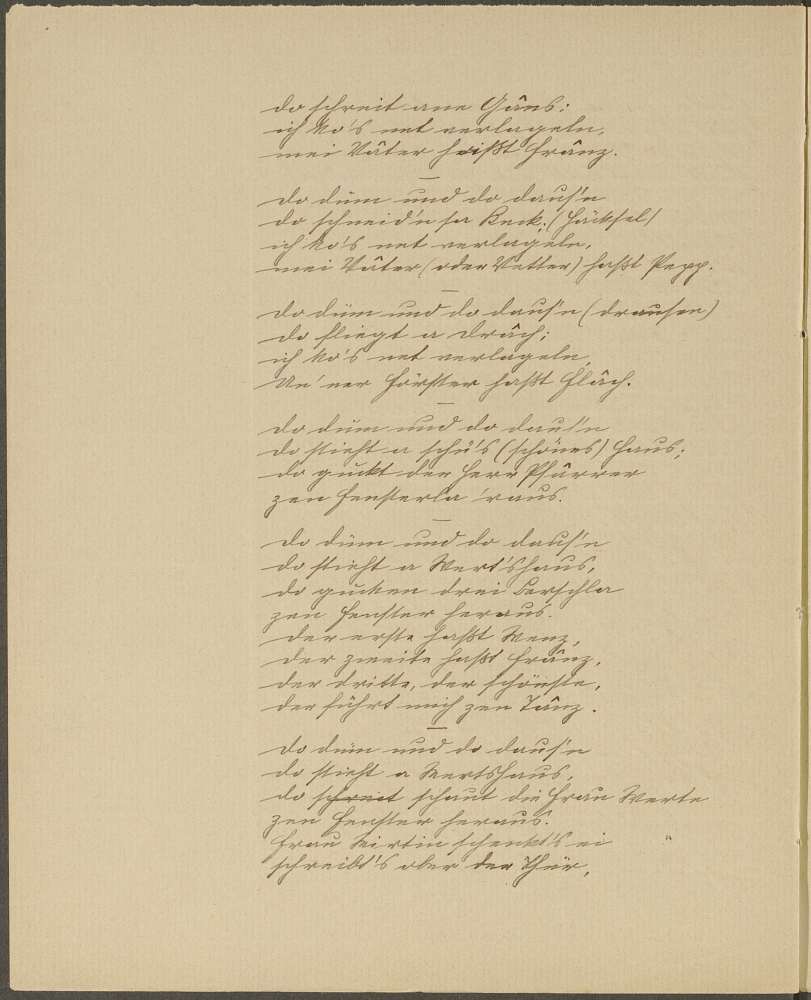 do schreit ane Gâns:
ich ko's net verlageln,
mei Vâter heißt Frânz.
—
do düm und do daus'n
do schneid'n sa Heck; (Häcksel)
ich ko's net verlageln,
mei Vâter (oder Vetter) haßt Pepp.
—
do düm und do daus'n (drausen)
do fliegt a Drâch;
ich ko's net verlageln,
Un'ner Förster haßt Flâch.
—
do düm und do daus'n
do stieht a schü's (schönes) Haus;
do guckt der Herr Pfârrer
zen Fensterla 'raus.
—
do düm und do daus'n
do stieht a Wert'shaus,
do gucken drei Berschla
zen Fenster heraus.
der erste haßt Wenz,
der zweite haßt Frânz,
der dritte, der schönste,
der führt mich zen Tânz.
—
do düm und do daus'n
do stieht a Wertshaus,
do schreit schaut die Frau Werte
zen Fenster heraus.
Frau Wirtin schenkt's ei
schreibt's ober der Thür,